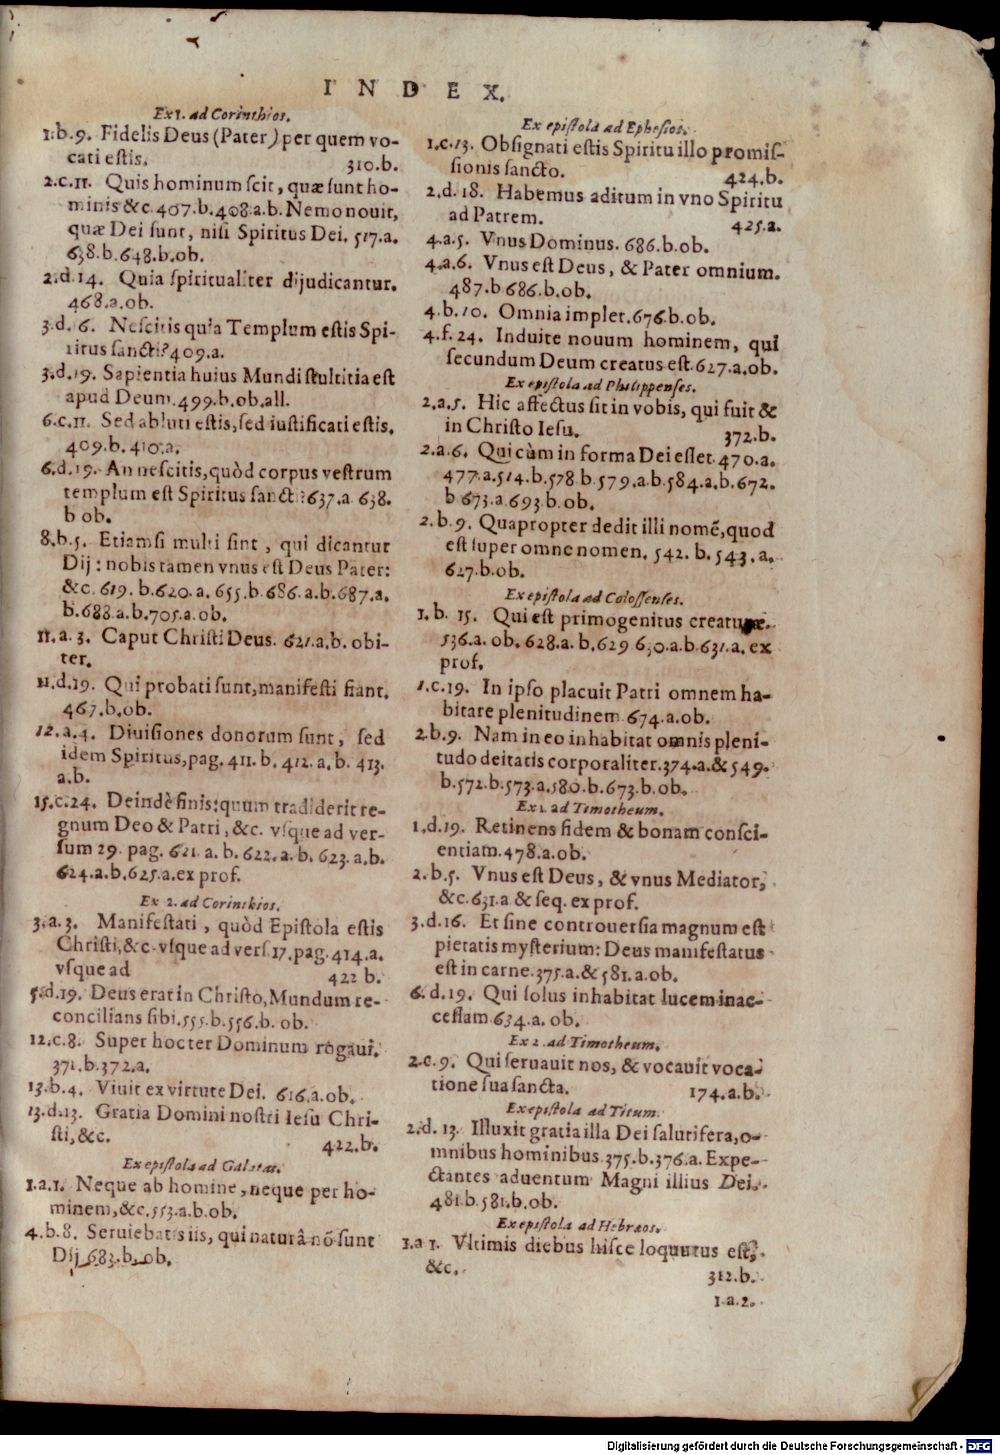 INDEX.
Ex 1. ad Corinthios.
1.b.9. Fidelis Deus (Pater) per quem vo-
cati estis. 310.b.
2.c.11. Quis hominum scit, quæ sunt ho-
minis &c. 407.b. 408.a.b. Nemo nouit,
quæ Dei sunt, nisi Spiritus Dei. 517.a.
638.b. 648.b.ob.
2.d.14. Quia spiritualiter dijudicantur.
468.a.ob.
3.d.6. Nescitis quia Templum estis Spi-
ritus sancti? 409.a.
3.d.19. Sapientia huius Mundi stultitia est
apud Deum. 499.b.ob.all.
6.c.11. Sed abluti estis, sed iustificati estis.
409.b. 410.a.
6.d.19. An nescitis, quòd corpus vestrum
templum est Spiritus sanct ? 637.a 638.
b ob.
8.b.5. Etiamsi multi sint, qui dicantur
Dij: nobis tamen vnus est Deus Pater:
&c. 619. b. 620. a. 655. b. 686. a.b. 687. a.
b. 688. a.b. 705.a.ob.
11.a.3. Caput Christi Deus. 621.a.b. obi-
ter.
11.d.19. Qui probati sunt, manifesti fiant.
467.b.ob.
12.a.4. Diuisiones donorum sunt, sed
idem Spiritus, pag. 411. b. 412. a. b. 413.
a.b.
15.c.24. Deindè finis: quum tradiderit re-
gnum Deo & Patri, &c. vsque ad ver-
sum 29. pag. 621. a. b. 622. a. b. 623. a.b.
624.a.b. 625.a.ex prof.
Ex 2. ad Corinthios.
3.a.3. Manifestati, quòd Epistola estis
Christi, &c. vsque ad vers. 17. pag. 414.a.
vsque ad 422 b.
5.d.19. Deus erat in Christo, Mundum re-
concilians sibi. 555.b. 556.b. ob.
12.c.8. Super hoc ter Dominum rogaui.
371.b. 372.a.
13.b.4. Viuit ex virtute Dei. 616.a.ob.
13.d.13. Gratia Domini nostri Iesu Chri-
sti, &c. 422.b.
Ex epistola ad Galatas.
1.a.1. Neque ab homine, neque per ho-
minem, &c. 553.a.b.ob.
4.b.8. Seruiebatis iis, qui naturâ nõ sunt
Dij 683.b. ob.
Ex epistola ad Ephesios.
1.c.13. Obsignati estis Spiritu illo promis-
sionis sancto. 424.b.
2.d.18. Habemus aditum in vno Spiritu
ad Patrem. 425.a.
4.a.5. Vnus Dominus. 686.b.ob.
4.a.6. Vnus est Deus, & Pater omnium.
487.b 686.b.ob.
4.b.10. Omnia implet. 676.b.ob.
4.f.24. Induite nouum hominem, qui
secundum Deum creatus est. 627.a.ob.
Ex epistola ad Philippenses.
2.a.5. Hic affectus sit in vobis, qui fuit &
in Christo Iesu. 372.b.
2.a.6. Qui cùm in forma Dei esset. 470.a.
477.a. 514.b. 578 b. 579.a.b. 584.a.b. 672.
b 673.a 693 b. ob.
2.b.9. Quapropter dedit illi nomẽ, quod
est super omne nomen. 542. b. 543. a.
627.b.ob.
Ex epistola ad Colossenses.
1.b.15. Qui est primogenitus creaturæ.
536.a. ob. 628.a. b. 629 630.a.b 631.a. ex
prof.
1.c.19. In ipso placuit Patri omnem ha-
bitare plenitudinem 674.a.ob.
2.b.9. Nam in eo inhabitat omnis pleni-
tudo deitatis corporaliter. 374.a. & 549.
b. 572.b. 573.a. 580.b. 673.b.ob.
Ex 1. ad Timotheum.
1.d.19. Retinens fidem & bonam consci-
entiam. 478.a.ob.
2.b.5. Vnus est Deus, & vnus Mediator,
&c. 631.a & seq. ex prof.
3.d.16. Et sine controuersia magnum est
pietatis mysterium: Deus manifestatus
est in carne. 375.a. & 581.a.ob.
6.d.19. Qui solus inhabitat lucem inac-
cessam 634.a. ob.
Ex 2. ad Timotheum.
2.c.9. Qui seruauit nos, & vocauit voca-
tione sua sancta. 174.a.b.
Ex epistola ad Titum.
2.d.13. Illuxit gratia illa Dei salutifera, o-
mnibus hominibus 375.b. 376.a. Expe-
ctantes aduentum Magni illius Dei.
481.b. 581.b.ob.
Ex epistola ad Hebræos.
1.a 1. Vltimis diebus hisce loquutus est,
&c. 312.b.
1.a.2.
Digitalisierung gefördert durch die Deutsche Forschungsgemeinschaft - DFG